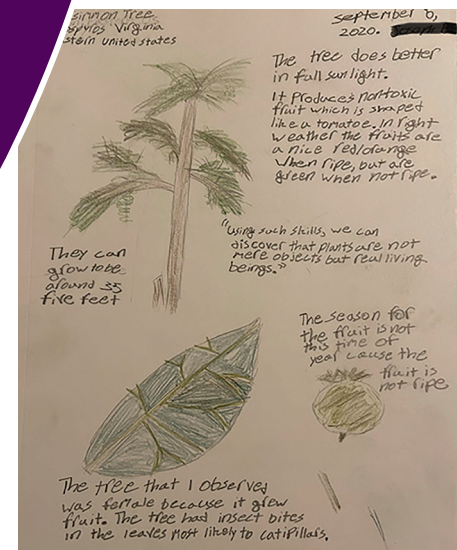 simmon Tree
spyros Virginia
stern united states
September 8,
2020.
The tree does better
in full sunlight.
It produces nontoxic
fruit which is shaped
like a tomatoe. In right
weather the fruits are
a nice red/orange
when ripe, but are
green when not ripe.
"Using such skills, we can
discover that plants are not
mere objects but real living
beings."
They can
grow to be
around 35
five feet
The season for
the fruit is not
this time of
year cause the
fruit is
not ripe
The tree that I observed
was female because it grew
fruit. The tree had insect bites
in the leaves most likely to catipillars.